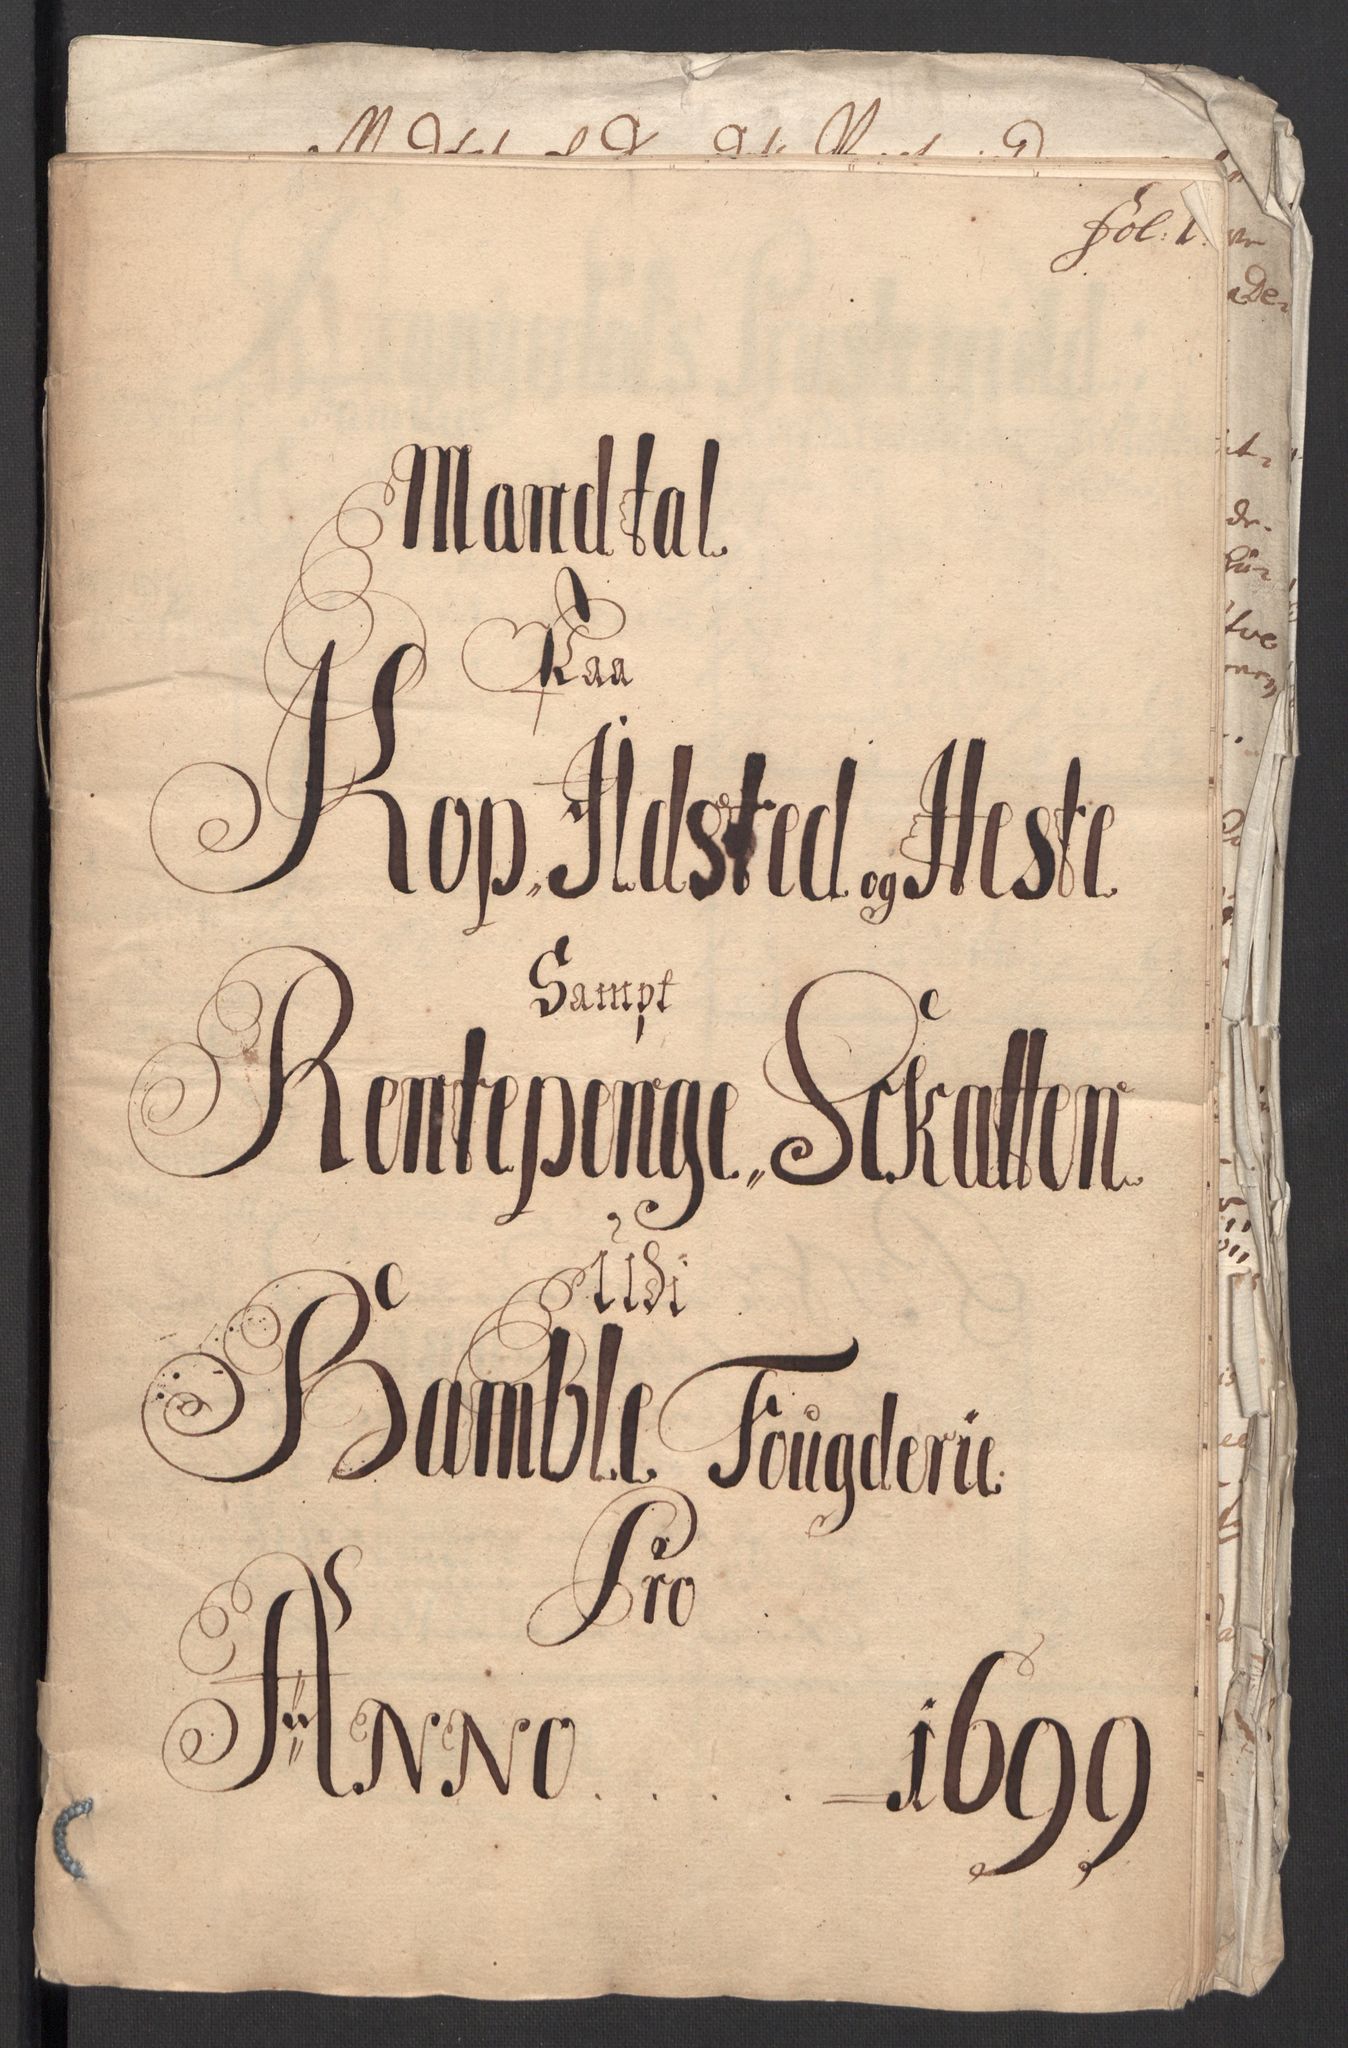 fol: 1.
Mandtal
Paa
Kop, Ildsted og Heste
Sampt
Rentepenge, Sckatten
Udi
Bamble Fougderie
Pro
Anno .... 1699